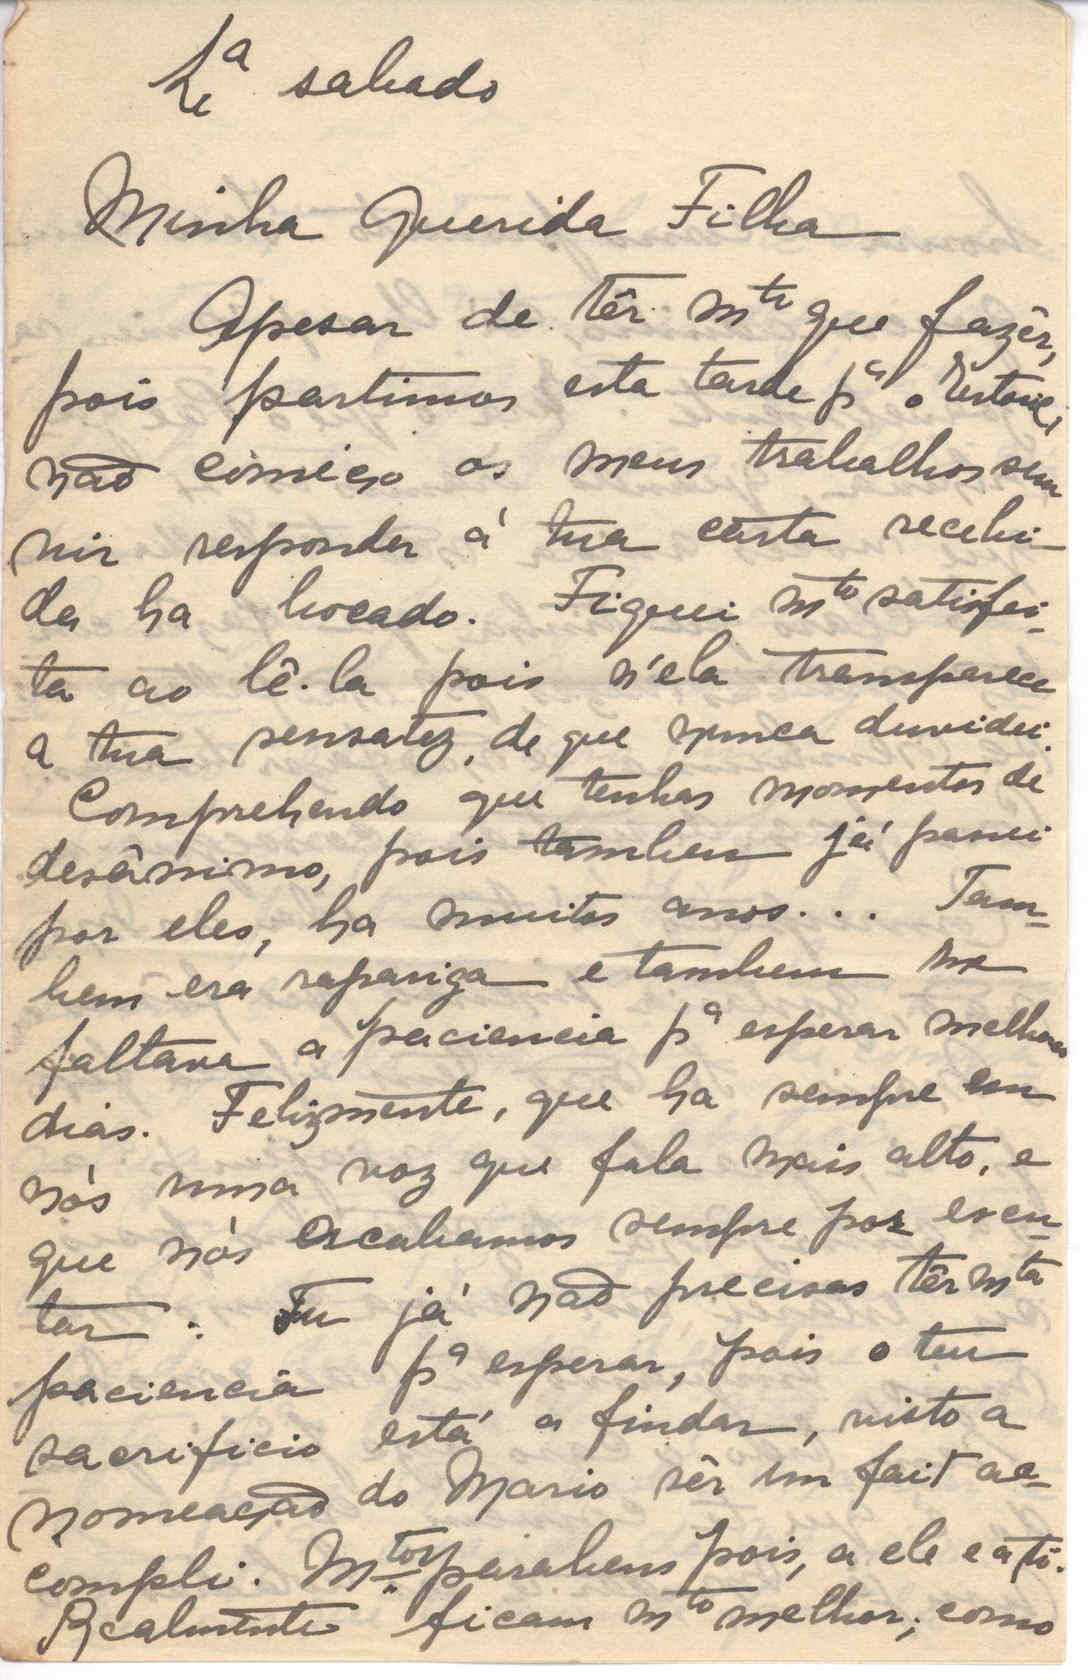 Lxª sabado
Minha Querida Filha
Apesar de têr mto que fazêr,
pois partimos esta tarde pª o Estoril
não começo os meus trabalhos sem
vir responder á tua carta recebi-
da ha bocado. Fiquei mto satisfei-
ta ao lê-la pois n'ela transparece
a tua sensatez, de que nunca duvidei.
Comprehendo que tenhas momentos de
desânimo, pois tambem já passei
por eles, ha muitos anos... Tam-
bem era rapariga e tambem me
faltava a paciencia pª esperar melhores
dias. Felizmente, que ha sempre em
nós uma voz que fala mais alto, e
que nós acabamos sempre por escu-
tar. Tu já não precisas têr mta
paciencia pª esperar, pois o teu
sacrificio está a findar, visto a
nomeação do Mario sêr um fait ac-
compli. Mtos parabens pois, a ele e a ti.
Realmente ficam mto melhor, como